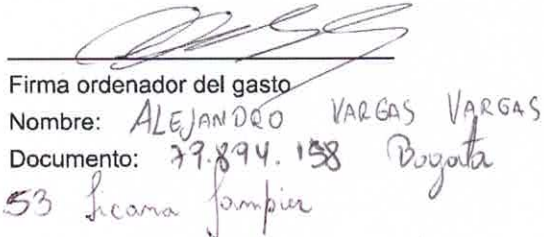 Firma ordenador del gasto
Nombre: ALEJANDRO VARGAS VARGAS
Documento: 79.894.158 Bogota
53